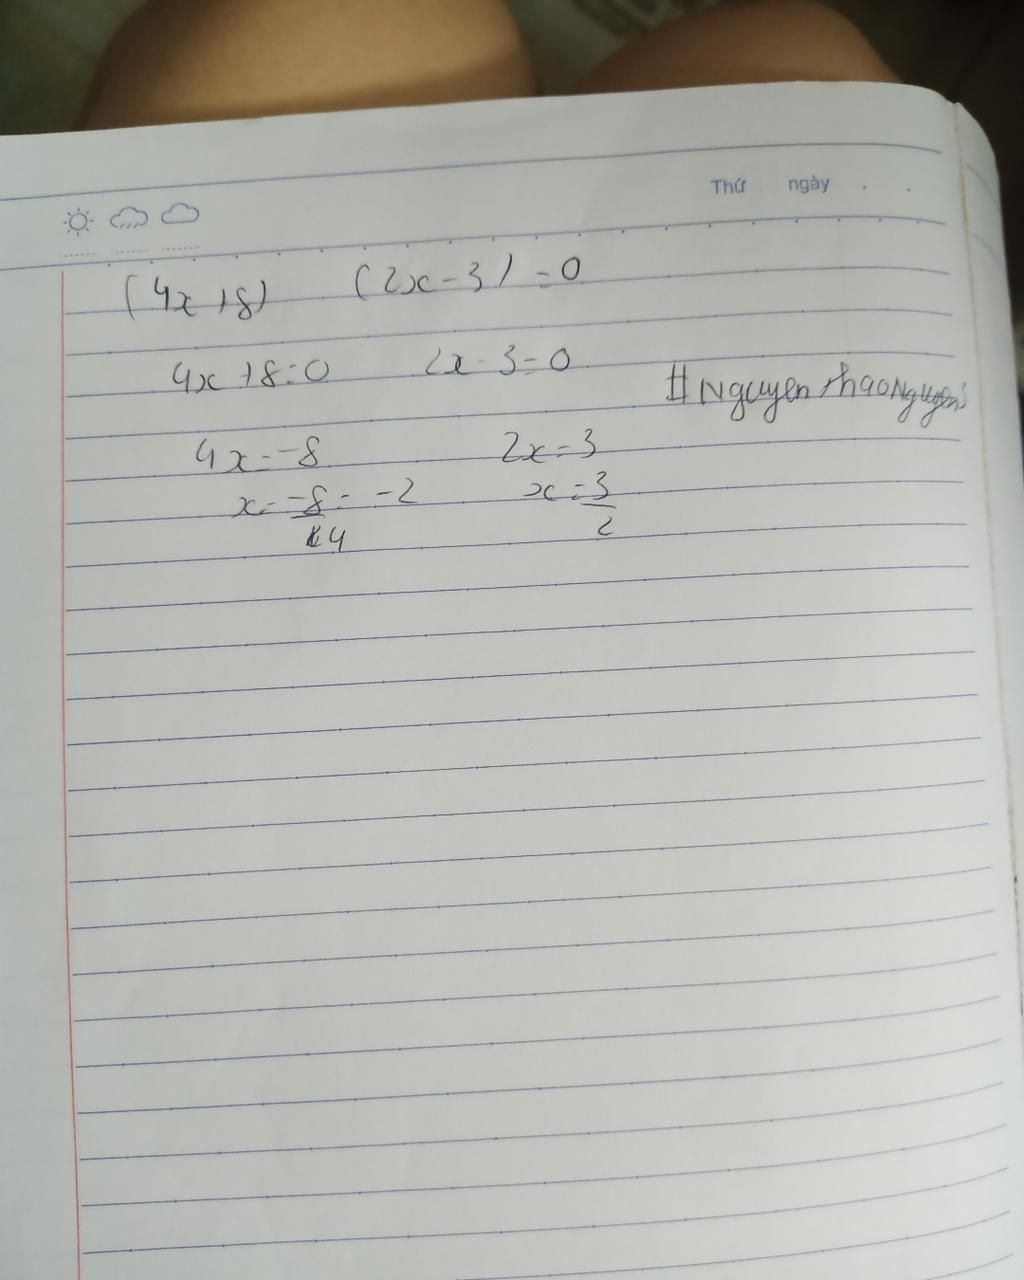 Thứ ngày . .
(4x+8) (2x-3)=0
4x+8=0 2x-3=0
#NguyenthaoNguyen
4x=-8 2x=3
x=-8/4=-2 x=3/2